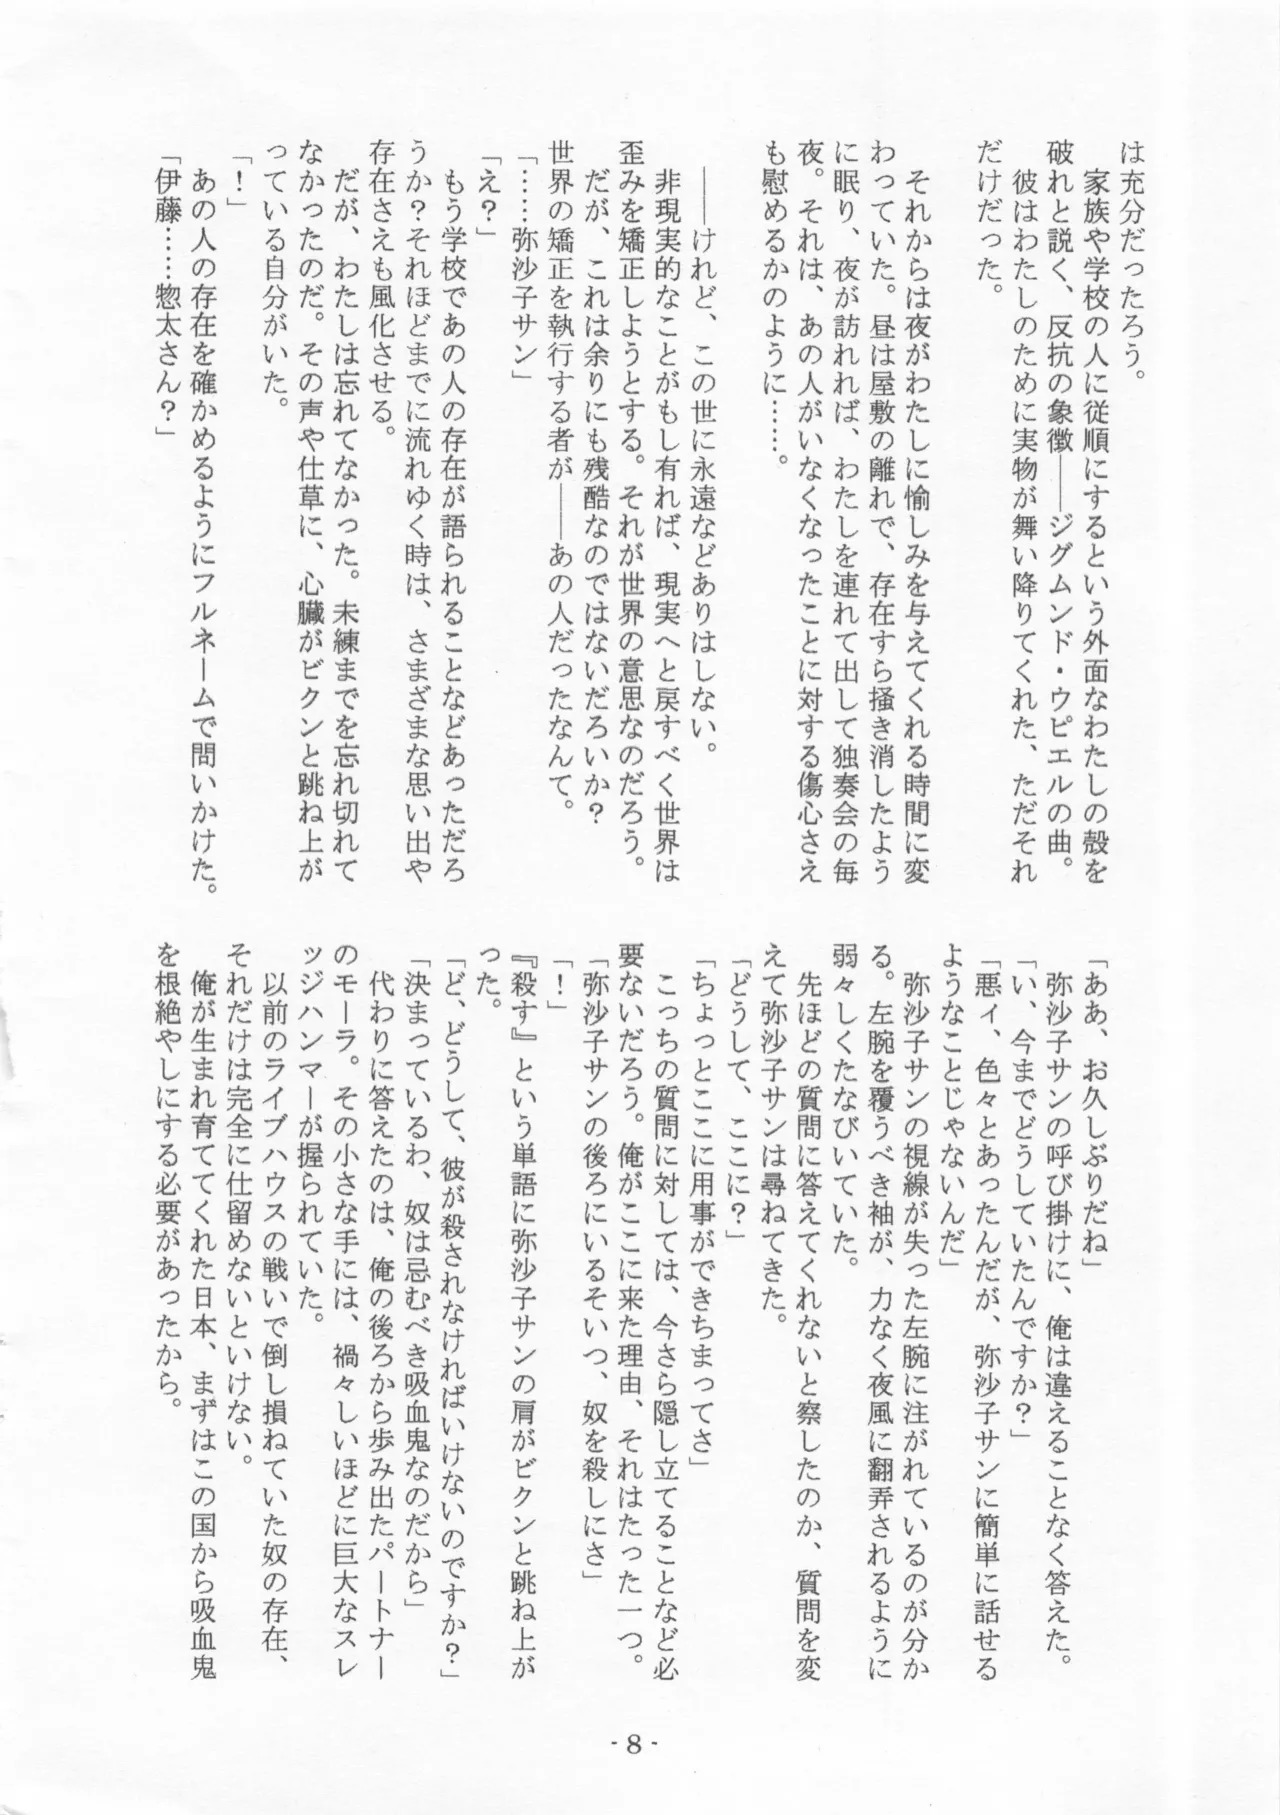 は充分だったろう。
　家族や学校の人に従順にするという外面なわたしの殻を
破れと説く、反抗の象徴――ジグムンド・ウピエルの曲。
　彼はわたしのために実物が舞い降りてくれた、ただそれ
だけだった。
　それからは夜がわたしに愉しみを与えてくれる時間に変
わっていた。昼は屋敷の離れで、存在すら掻き消したよう
に眠り、夜が訪れれば、わたしを連れて出して独奏会の毎
夜。それは、あの人がいなくなったことに対する傷心さえ
も慰めるかのように……。
　――けれど、この世に永遠などありはしない。
　非現実的なことがもし有れば、現実へと戻すべく世界は
歪みを矯正しようとする。それが世界の意思なのだろう。
　だが、これは余りにも残酷なのではないだろいか？
世界の矯正を執行する者が――あの人だったなんて。
「……弥沙子サン」
「え？」
　もう学校であの人の存在が語られることなどあっただろ
うか？それほどまでに流れゆく時は、さまざまな思い出や
存在さえも風化させる。
　だが、わたしは忘れてなかった。未練までを忘れ切れて
なかったのだ。その声や仕草に、心臓がビクンと跳ね上が
っている自分がいた。
「！」
　あの人の存在を確かめるようにフルネームで問いかけた。
「伊藤……惣太さん？」
「ああ、お久しぶりだね」
　弥沙子サンの呼び掛けに、俺は違えることなく答えた。
「い、今までどうしていたんですか？」
「悪ィ、色々とあったんだが、弥沙子サンに簡単に話せる
ようなことじゃないんだ」
　弥沙子サンの視線が失った左腕に注がれているのが分か
る。左腕を覆うべき袖が、力なく夜風に翻弄されるように
弱々しくたなびいていた。
　先ほどの質問に答えてくれないと察したのか、質問を変
えて弥沙子サンは尋ねてきた。
「どうして、ここに？」
「ちょっとここに用事ができちまってさ」
　こっちの質問に対しては、今さら隠し立てることなど必
要ないだろう。俺がここに来た理由、それはたった一つ。
「弥沙子サンの後ろにいるそいつ、奴を殺しにさ」
「！」
『殺す』という単語に弥沙子サンの肩がビクンと跳ね上が
った。
「ど、どうして、彼が殺されなければいけないのですか？」
「決まっているわ、奴は忌むべき吸血鬼なのだから」
　代わりに答えたのは、俺の後ろから歩み出たパートナー
のモーラ。その小さな手には、禍々しいほどに巨大なスレ
ッジハンマーが握られていた。
　以前のライブハウスの戦いで倒し損ねていた奴の存在、
それだけは完全に仕留めないといけない。
　俺が生まれ育ててくれた日本、まずはこの国から吸血鬼
を根絶やしにする必要があったから。
- 8 -